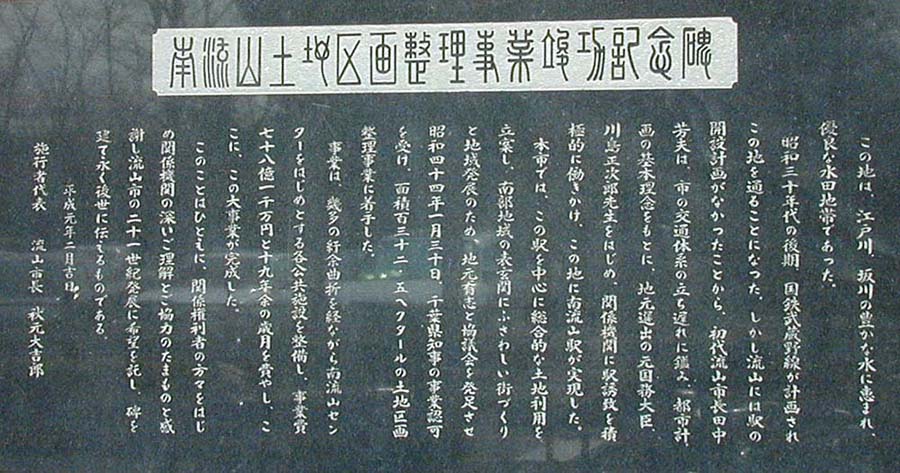 南流山土地区画整理事業竣功記念碑
この地は、江戸川、坂川の豊かな水に恵まれ、
優良な水田地帯であった。
昭和三十年代の後期、国鉄武蔵野線が計画され
この地を通ることになった。しかし流山には駅の
開設計画がなかったことから、初代流山市長田中
芳夫は、市の交通体系の立ち遅れに鑑み、都市計
画の基本理念をもとに、地元選出の元国務大臣、
川島正次郎先生をはじめ、関係機関に駅誘致を積
極的に働きかけ、この地に南流山駅が実現した。
本市では、この駅を中心に総合的な土地利用を
立案し、南部地域の表玄関にふさわしい街づくり
と地域発展のため、地元有志と協議会を発足させ
昭和四十四年一月三十日、千葉県知事の事業認可
を受け、面積百三十二・五ヘクタールの土地区画
整理事業に着手した。
事業は、幾多の紆余曲折を経ながら南流山セン
ターをはじめとする各公共施設を整備し、事業費
七十八億一千万円と十九年余の歳月を費やし、こ
こに、この大事業が完成した。
このことはひとえに、関係権利者の方々をはじ
め関係機関の深いご理解とご協力のたまものと感
謝し流山市の二十一世紀発展に希望を託し、碑を
建て永く後世に伝えるものである。
平成元年二月吉日
施行者代表 流山市長 秋元大吉郎